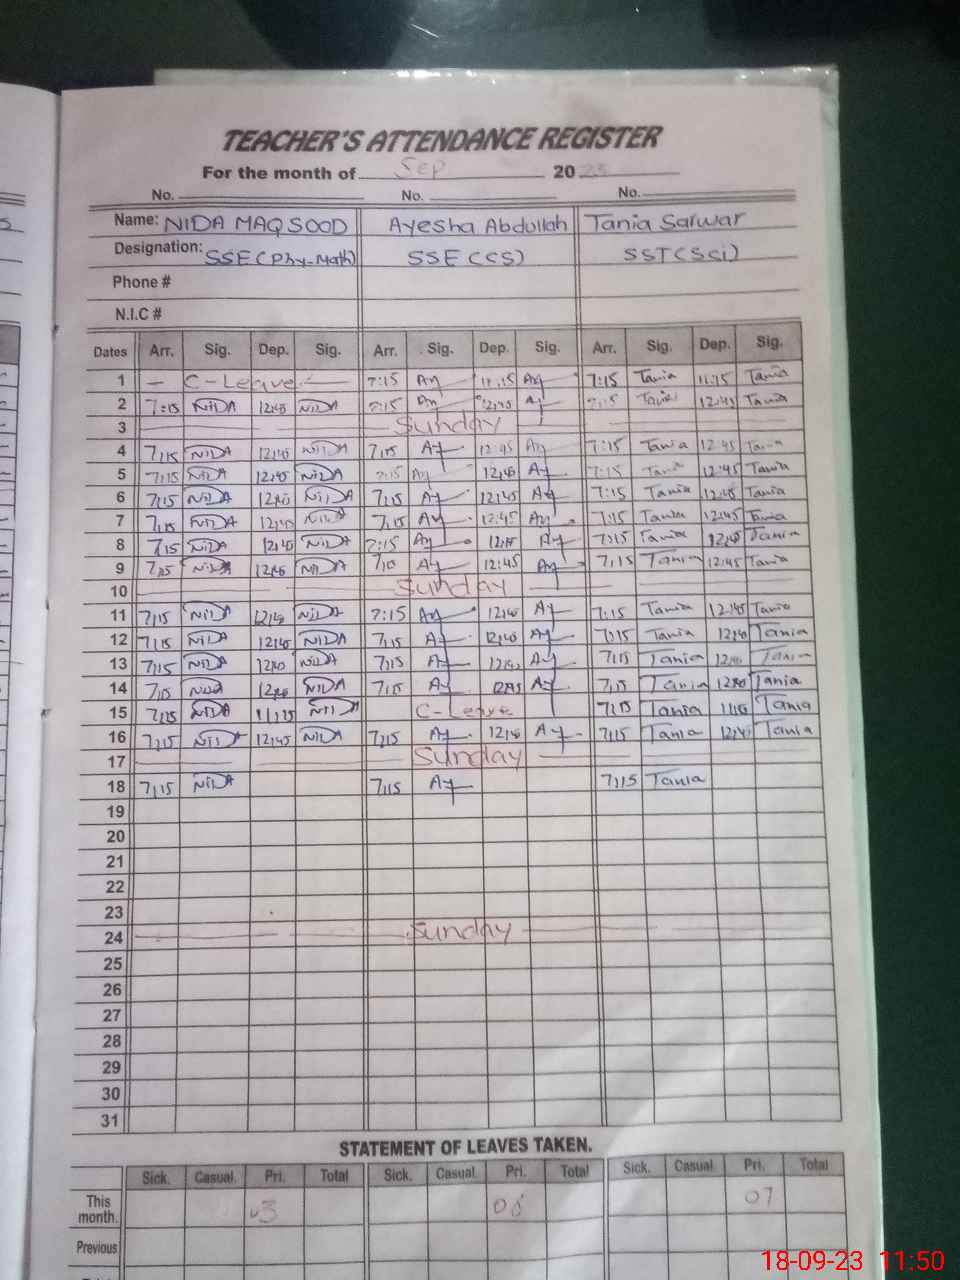 TEACHER'S ATTENDANCE REGISTER
For the month of Sep 20
No. No. No.
Name: NIDA MAQSOOD Ayesha Abdullah Tania Sarwar
Designation: SSE (Phy-Math) SSE (CS) SST (Sci)
Phone #
N.I.C #
Dates Arr. Sig. Dep. Sig. Arr. Sig. Dep. Sig. Arr. Sig. Dep. Sig.
1 — C-Leave — 7:15 Ay 11:15 Ay 7:15 Tania 11:15 Tania
2 7:15 NIDA 12:45 NIDA 7:15 Ay 12:45 Ay 7:15 Tania 12:45 Tania
3 Sunday
4 7:15 NIDA 12:45 NIDA 7:15 Ay 12:45 Ay 7:15 Tania 12:45 Tania
5 7:15 NIDA 12:45 NIDA 7:15 Ay 12:45 Ay 7:15 Tania 12:45 Tania
6 7:15 NIDA 12:45 NIDA 7:15 Ay 12:45 Ay 7:15 Tania 12:45 Tania
7 7:15 NIDA 12:45 NIDA 7:15 Ay 12:45 Ay 7:15 Tania 12:45 Tania
8 7:15 NIDA 12:45 NIDA 7:15 Ay Ay 7:15 Tania 12:45 Tania
9 7:15 NIDA 12:45 NIDA Ay 12:45 Ay 7:15 Tania 12:45 Tania
10 Sunday
11 7:15 NIDA 12:45 NIDA 7:15 Ay 12:45 Ay 7:15 Tania 12:45 Tania
12 7:15 NIDA 12:40 NIDA 7:15 Ay 12:40 Ay 7:15 Tania 12:40 Tania
13 7:15 NIDA 12:40 NIDA 7:15 Ay Ay 7:15 Tania Tania
14 7:15 NIDA NIDA 7:15 Ay 12:45 Ay 7:15 Tania 12:40 Tania
15 7:15 NIDA 11:15 NIDA C-Leave 7:15 Tania 11:15 Tania
16 7:15 NIDA 12:45 NIDA 7:15 Ay 12:40 Ay 7:15 Tania 12:40 Tania
17 Sunday
18 7:15 NIDA 7:15 Ay 7:15 Tania
19
20
21
22
23
24 Sunday
25
26
27
28
29
30
31
STATEMENT OF LEAVES TAKEN.
Sick. Casual. Pri. Total Sick. Casual. Pri. Total Sick. Casual. Pri. Total
This month. 03 07
Previous
18-09-23 11:50